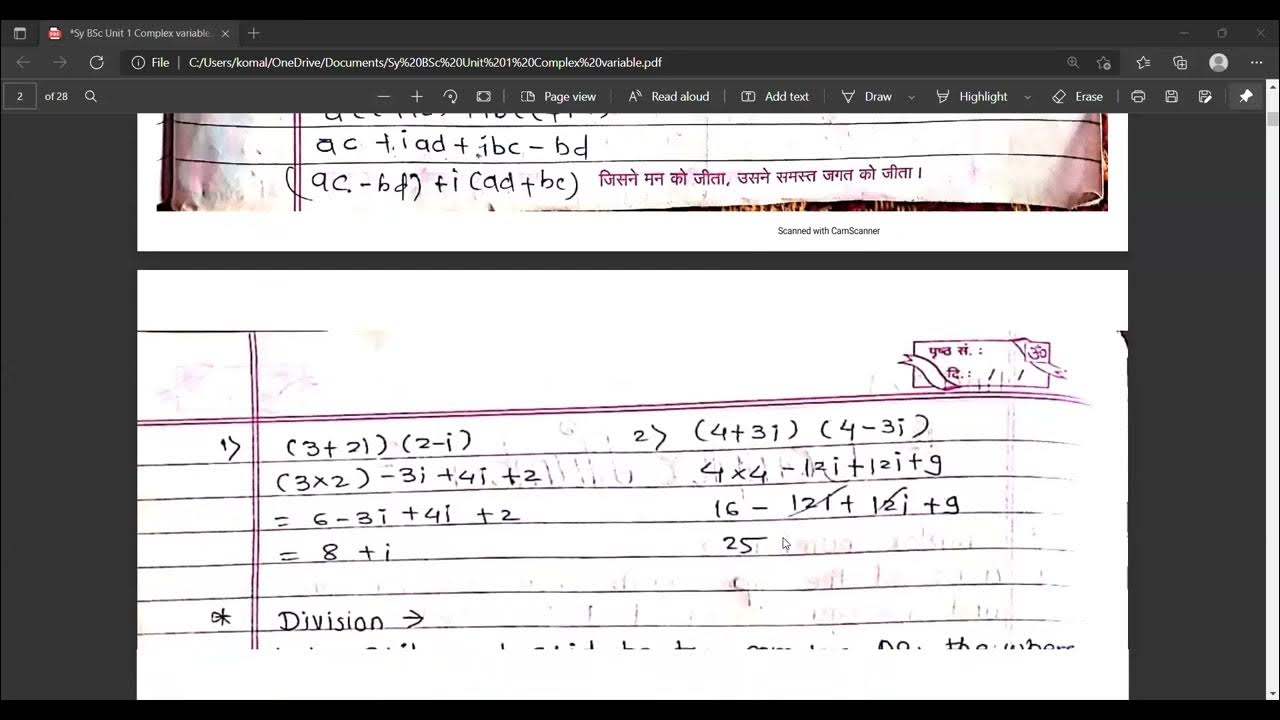 *Sy BSc Unit 1 Complex variable.
File C:/Users/komal/OneDrive/Documents/Sy%20BSc%20Unit%201%20Complex%20variable.pdf
2 of 28 Page view Read aloud Add text Draw Highlight Erase
ac + iad + ibc - bd
(ac - bd) + i (ad + bc) जिसने मन को जीता, उसने समस्त जगत को जीता।
Scanned with CamScanner
पृष्ठ सं. : ॐ
दि. : / /
1) (3+2i) (2-i) 2) (4+3i) (4-3i)
(3×2) -3i +4i +2 4×4 -12i +12i +9
= 6-3i +4i +2 16 - 12i + 12i +9
= 8 + i 25
* Division →